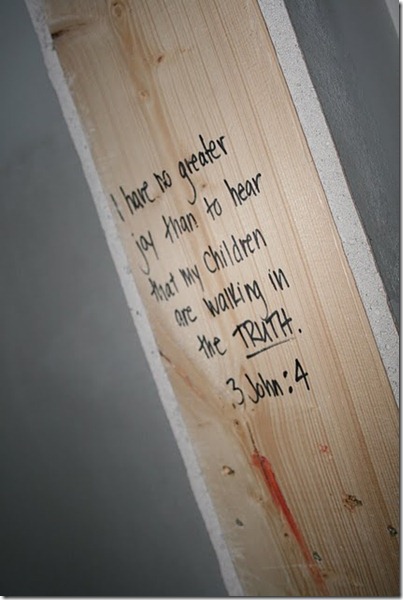 I have no greater
joy than to hear
that my children
are walking in
the TRUTH.
3 John : 4